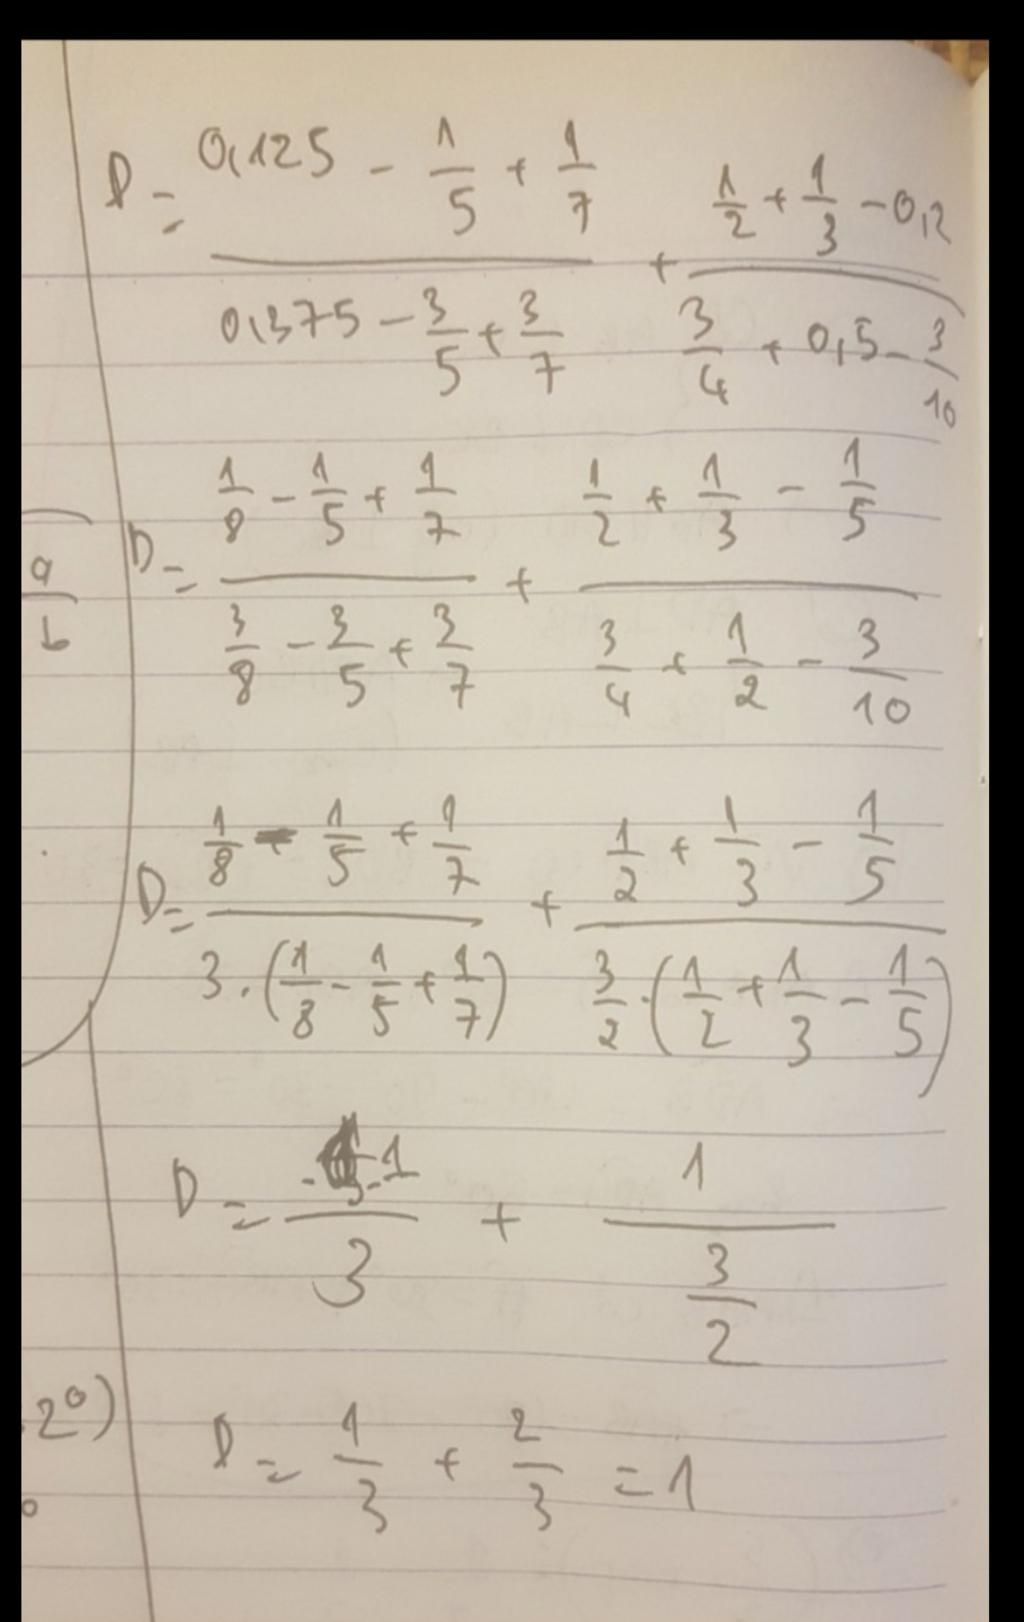 D = (0,125 - 1/5 + 1/7) / (0,375 - 3/5 + 3/7) + (1/2 + 1/3 - 0,2) / (3/4 + 0,5 - 3/10)
a/b
D = (1/8 - 1/5 + 1/7) / (3/8 - 3/5 + 3/7) + (1/2 + 1/3 - 1/5) / (3/4 + 1/2 - 3/10)
D = (1/8 - 1/5 + 1/7) / (3 . (1/8 - 1/5 + 1/7)) + (1/2 + 1/3 - 1/5) / (3/2 . (1/2 + 1/3 - 1/5))
D = 1/3 + 1/(3/2)
2°)
D = 1/3 + 2/3 = 1